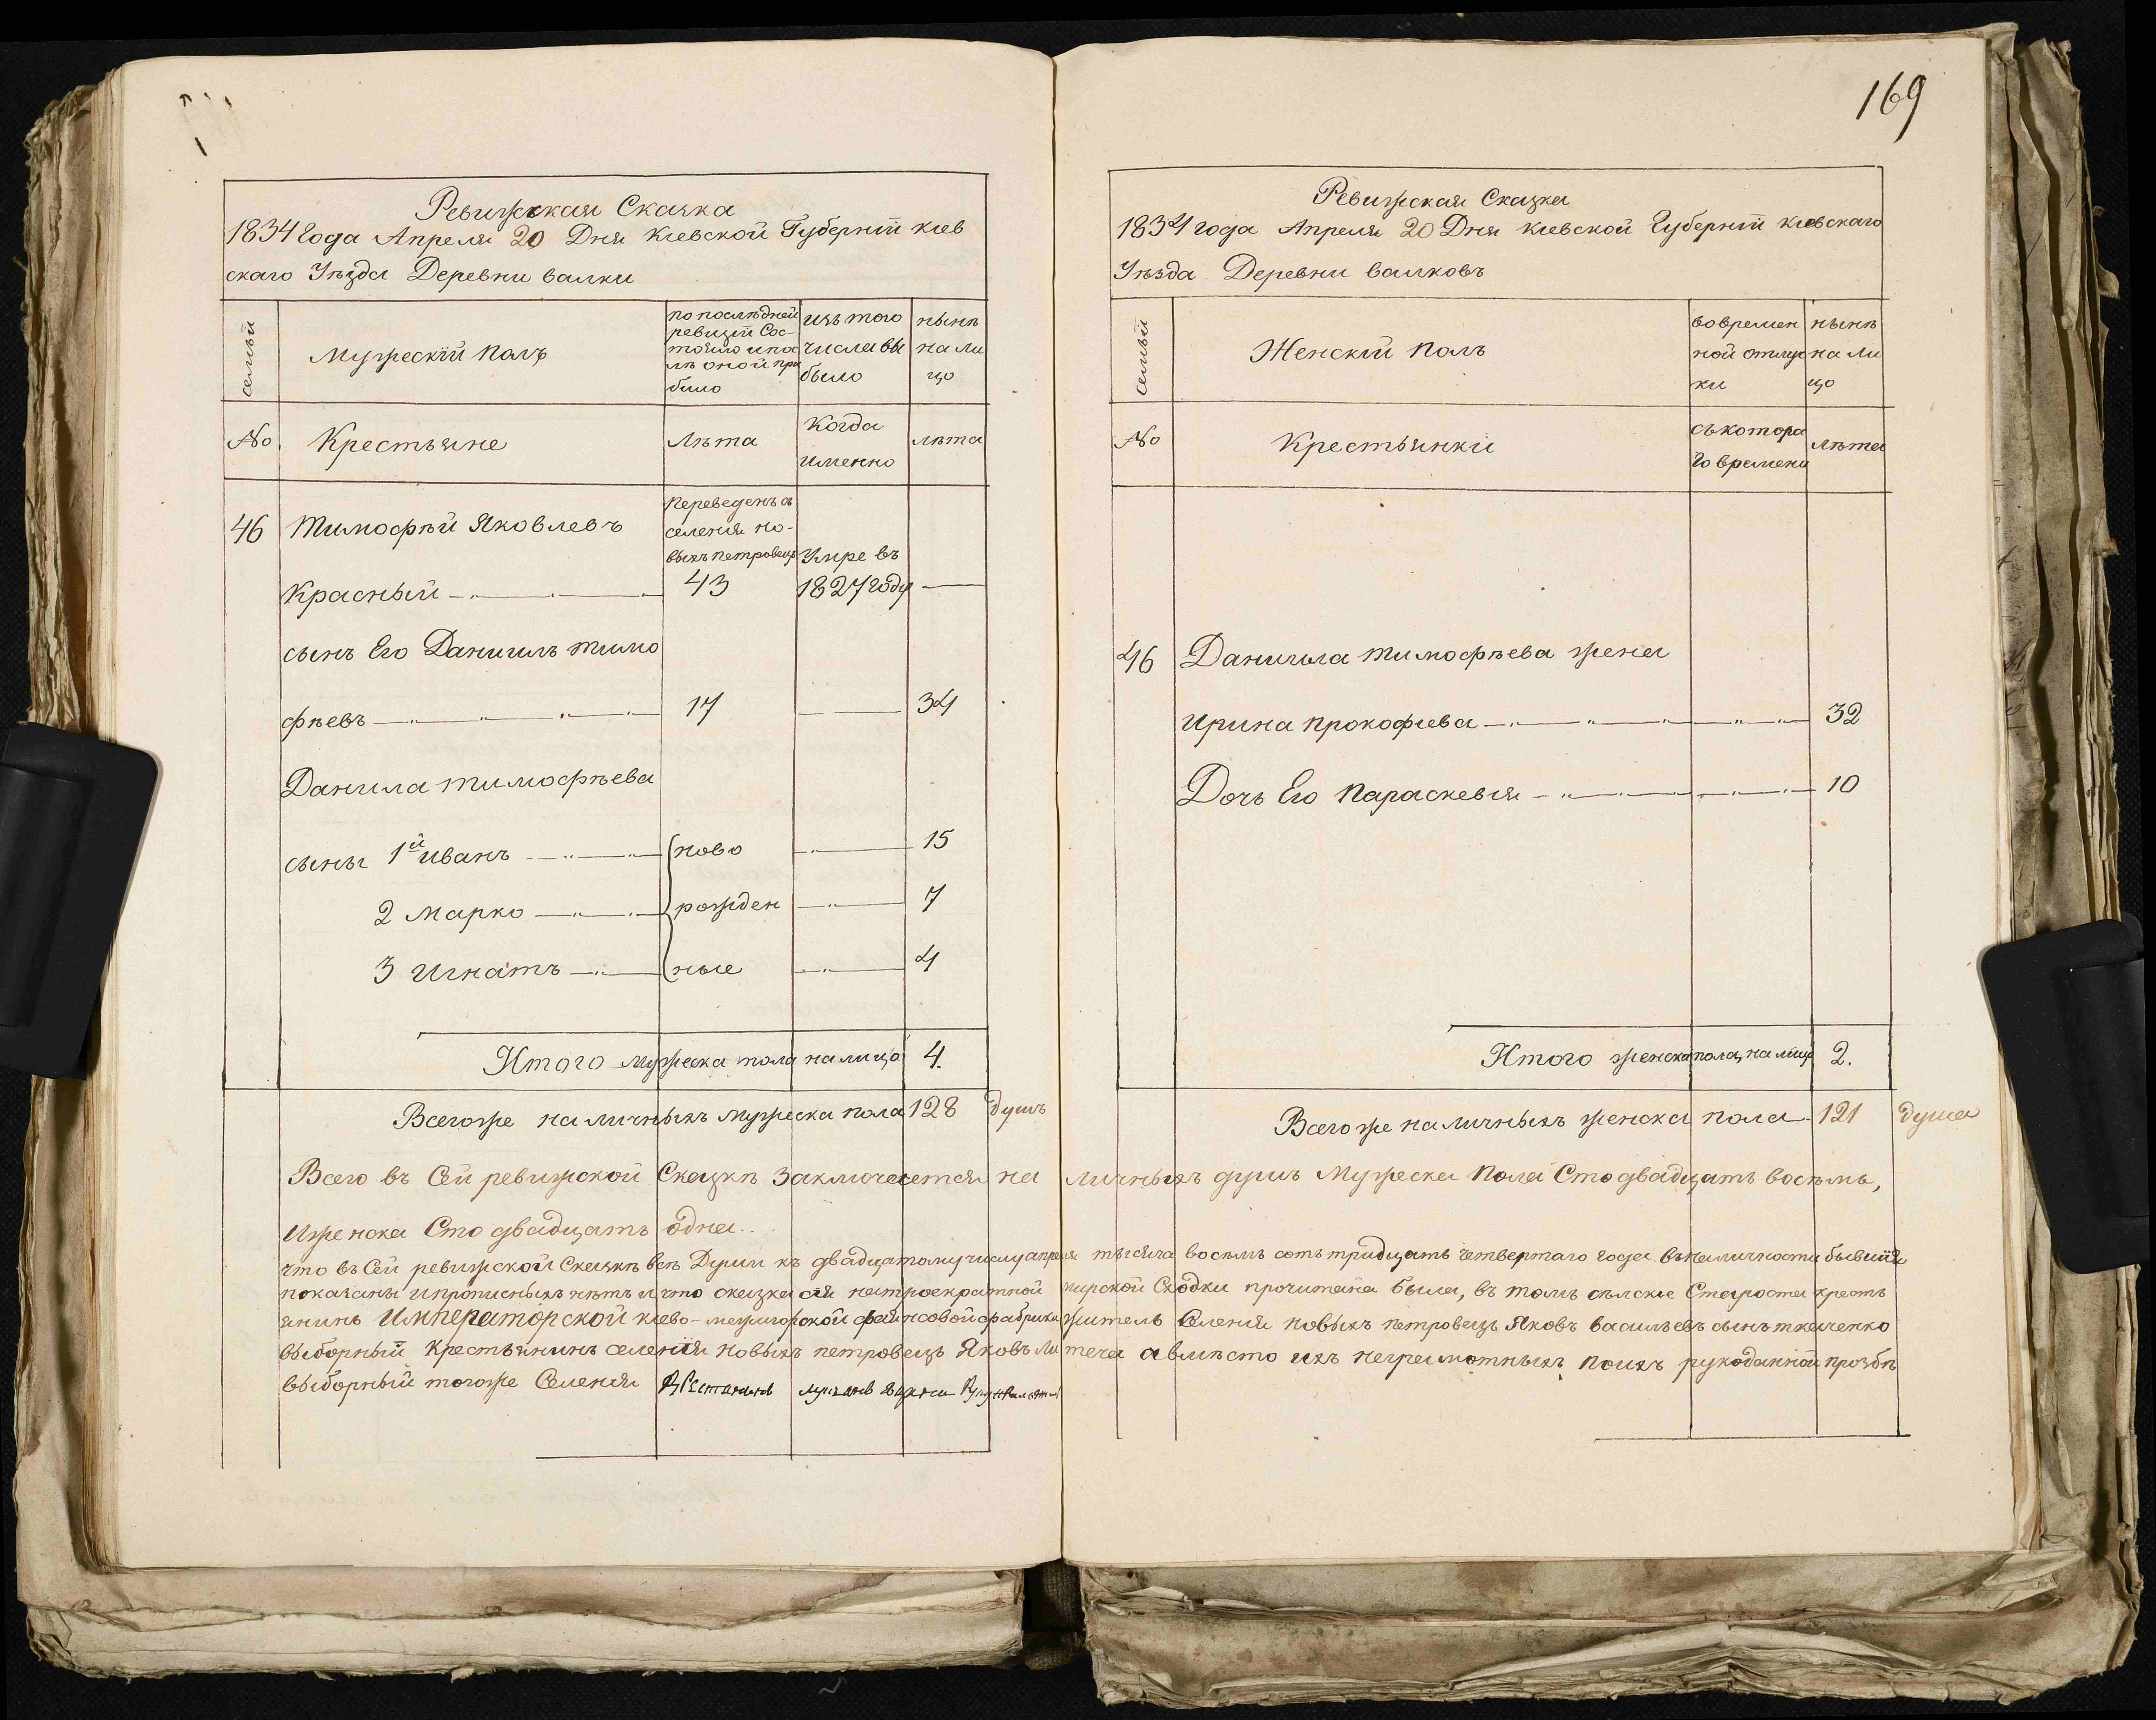 Ревижская Сказка
1834 Года Апреля 20 Дня Киевской Губернїи киев
скаго Уѣзда Деревни валки
семьи
Мужескїй полъ
по послѣдней
ревизїи Сос-
тояло и по
лѣ оной при
было
изъ того
числа вы
было
нынѣ
на ли
цо
No
Крестьяне
Лѣта
Когда
именно
лѣта
46
Тимофѣй Яковлевъ
Красный
Переведенъ съ
селенїя но-
выхъ петровецъ
43
Умре въ
1827 году
сынъ Его Даниилъ тимо
фѣевъ 17 34
Данила тимофѣева
сыны 1й иванъ ново 15
2 Марко рожден 7
3 Игнатъ ные 4
Итого мужеска пола на лицо 4.
Всегоже наличныхъ мужеска пола 128 душъ
169
Ревижская Сказка
1834 года Апреля 20 Дня киевской Губернїи киевскаго
Уѣзда Деревни валковъ
семьи
Женскїй полъ
во времен
ной отлуч
ки
нынѣ
на ли
цо
No
Крестьянки
съ котора
го времени
лѣта
46 Даниила тимофѣева жена
ирина прокофиева 32
Дочь Его Параскевия 10
Итого женска пола, на лицо 2.
Всего же наличныхъ женска пола 121 душа
Всего въ Сей ревижской Сказкѣ Заключается на личныхъ душъ Мужеска Пола Сто двадцать восѣмь,
Иженска Сто двадцать одна..
что въ Сей ревижской Сказкѣ всѣ Души къ двадцатому числу апреля тысяча восѣмь сотъ тридцать четвертаго года въ наличности бывшїя
показаны и прописныхъ нѣтъ и что сказка сїя на троекратной мирской Сходки прочитана была, въ томъ сѣлскїе Староста кресть
янинъ Императорской киево-межигорской фаянсовой фабрики житель Селенїя новыхъ петровецъ Яковъ васильевъ сынъ ткаченко
выборный Крестьянинъ селенїя новыхъ петровецъ Яковъ Ли теча авмѣсто ихъ неграмотныхъ поихъ рукоданной прозбѣ
выборный тогоже Селенїя